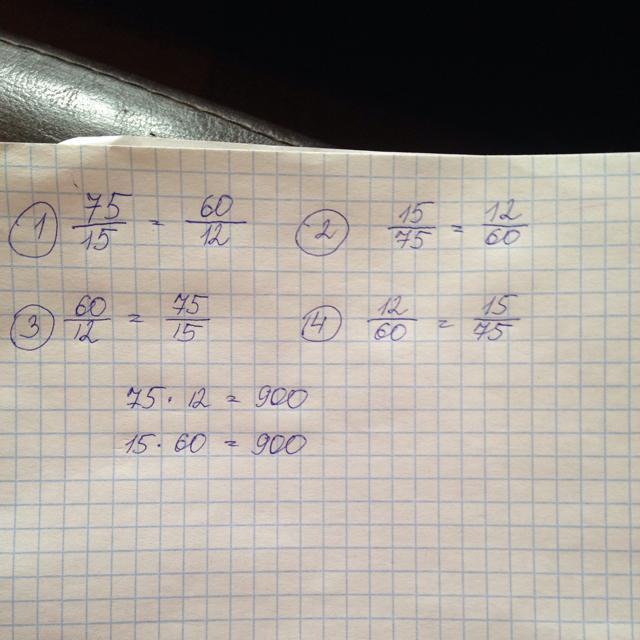 1 75/15 = 60/12 2 15/75 = 12/60
3 60/12 = 75/15 4 12/60 = 15/75
75 · 12 = 900
15 · 60 = 900